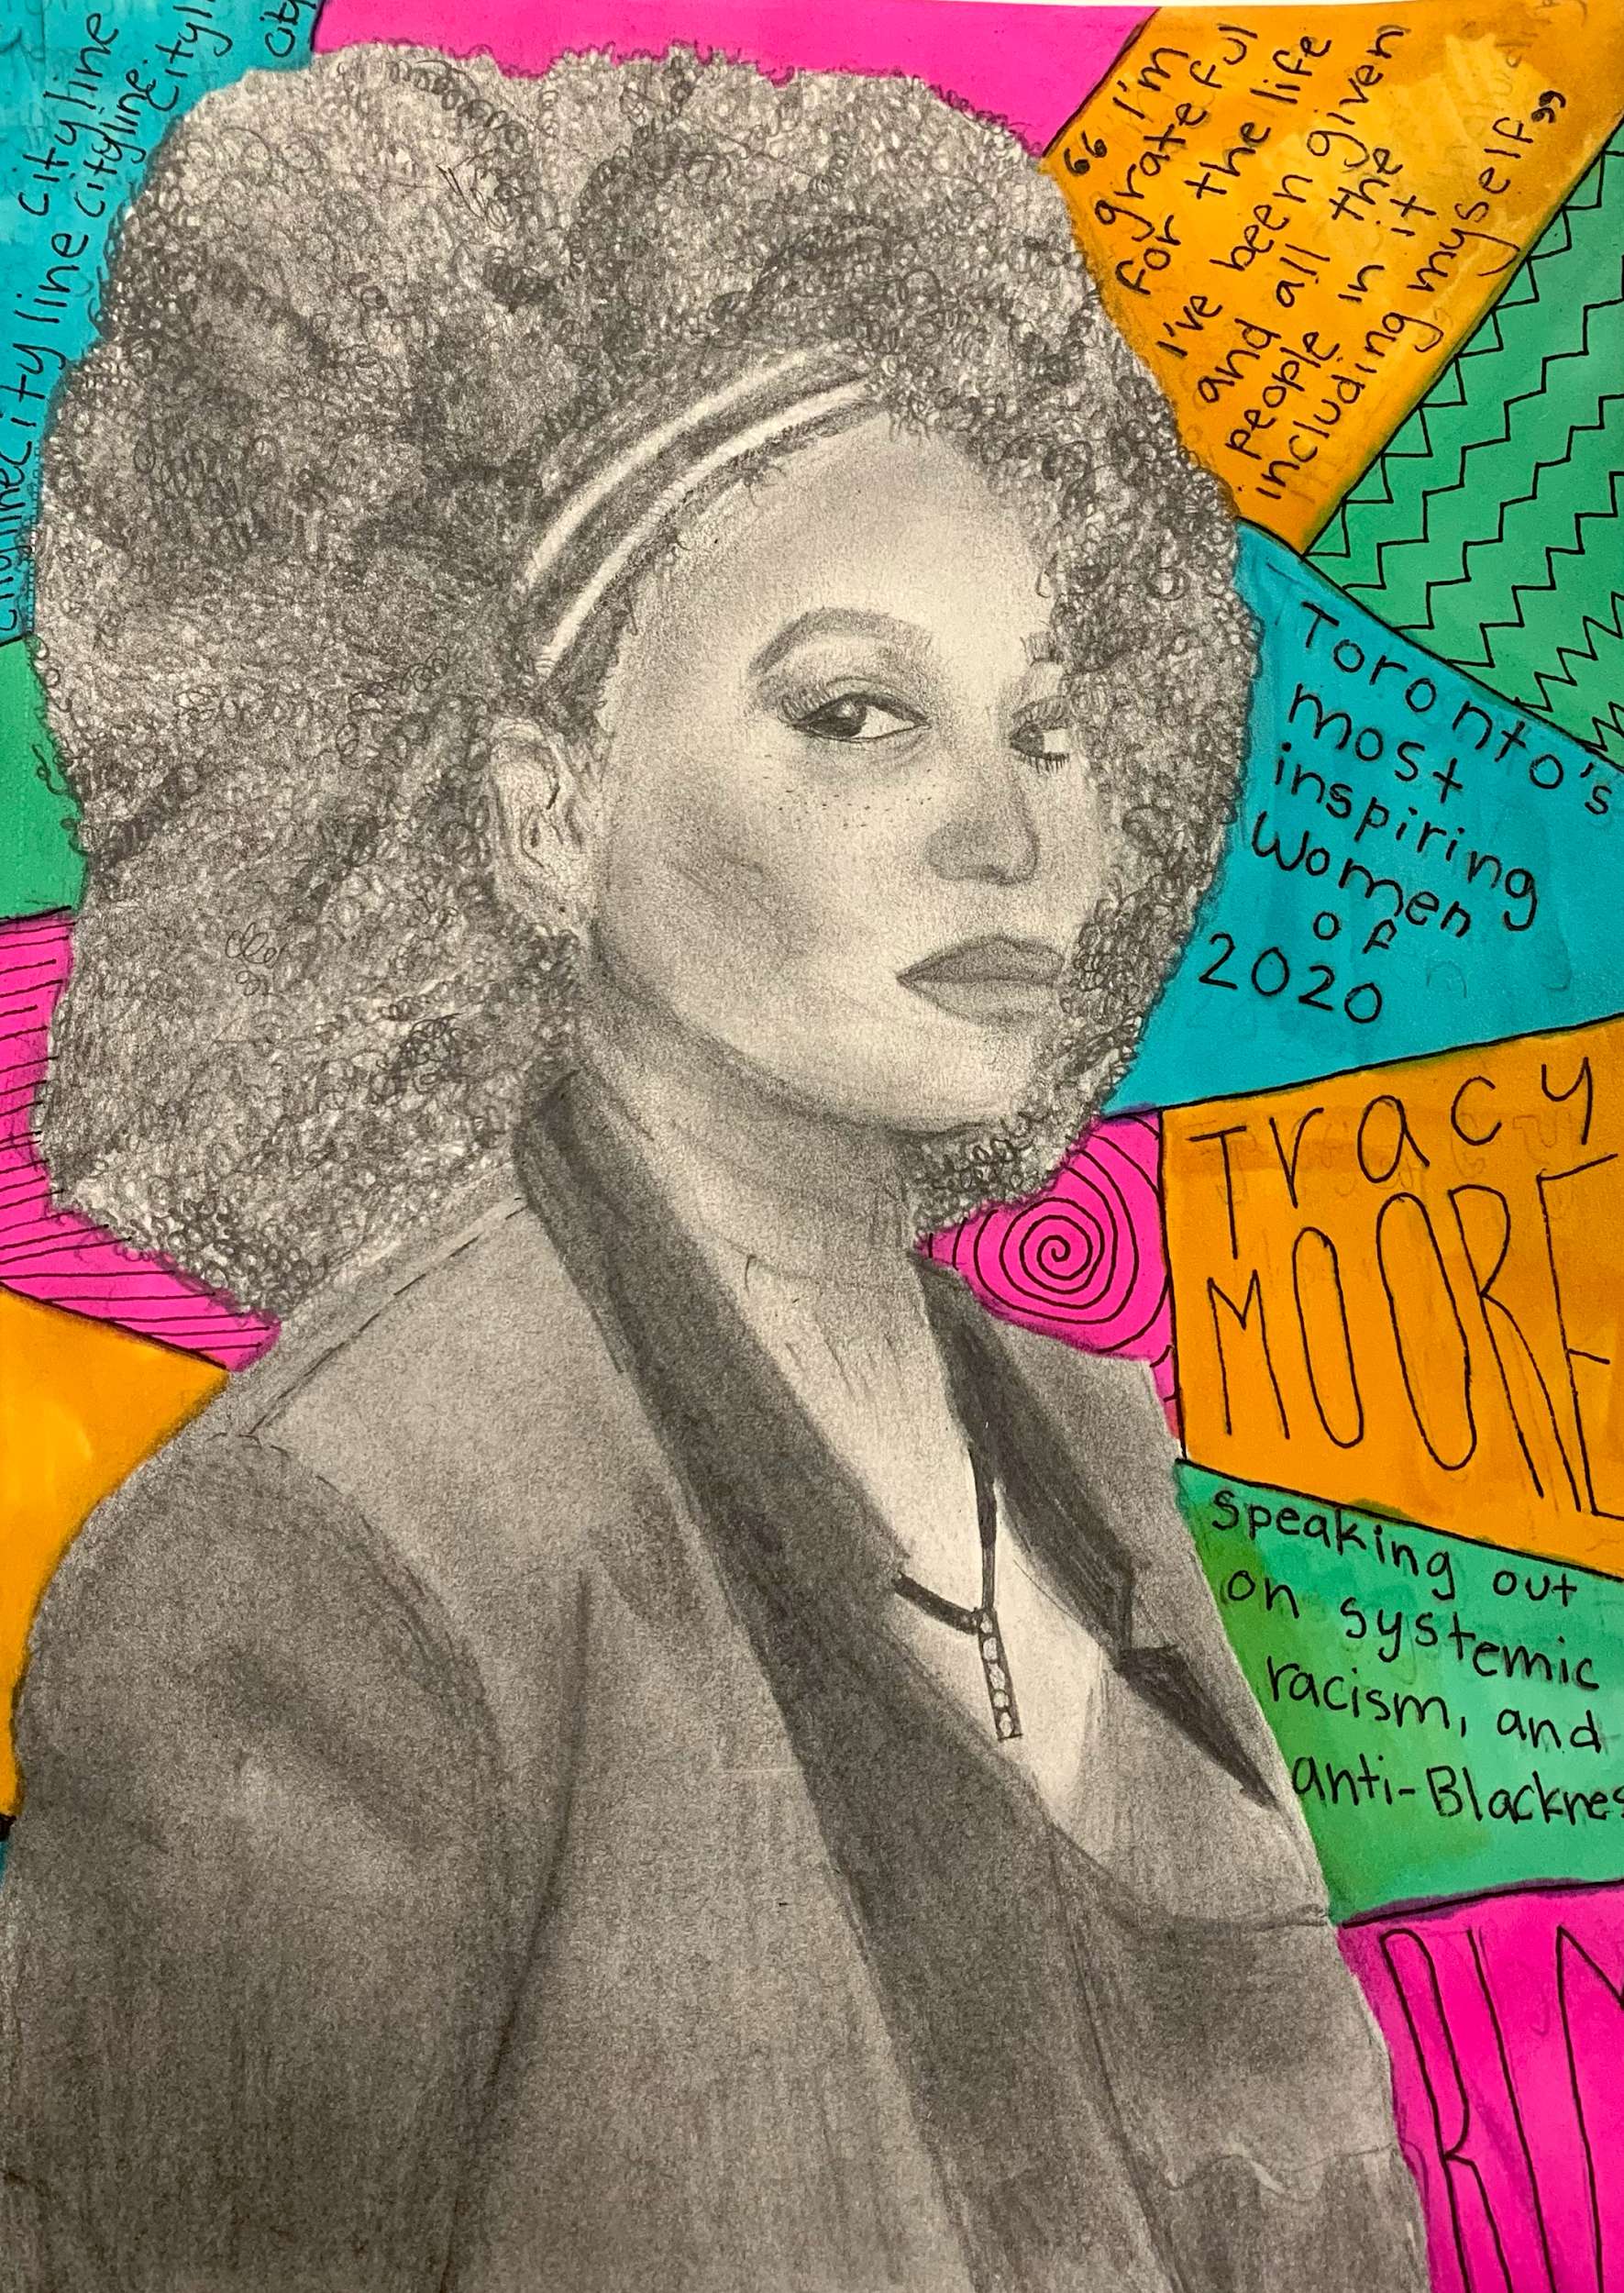 cityline cityline city line city line
cityline cityline
cityline
city
“I'm
grateful
for the life
I've been given
and all the
people in it
including myself”
Toronto's
most
inspiring
Women
of
2020
Tracy
MOORE
speaking out
on systemic
racism, and
anti-Blacknes